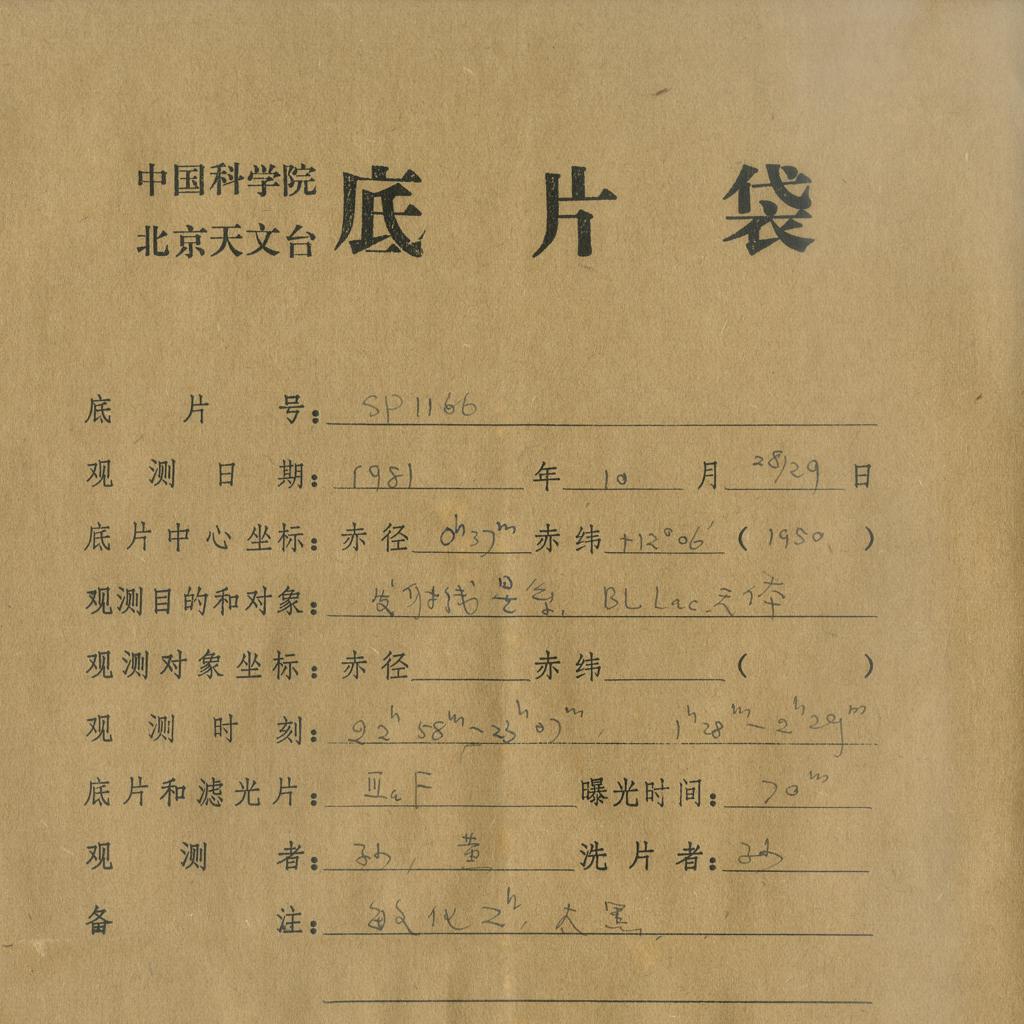 中国科学院
北京天文台
底片袋
底片号：SP1166
观测日期：1981年10月28/29日
底片中心坐标：赤径 0h37m 赤纬 +12°06′（1950）
观测目的和对象：发射线星系, BL Lac天体
观测对象坐标：赤径 赤纬 （ ）
观测时刻：22h58m—23h07m, 1h28m—2h29m
底片和滤光片：ⅢaF 曝光时间：70m
观测者：孙, 董 洗片者：孙
备注：敏化2h, 太黑